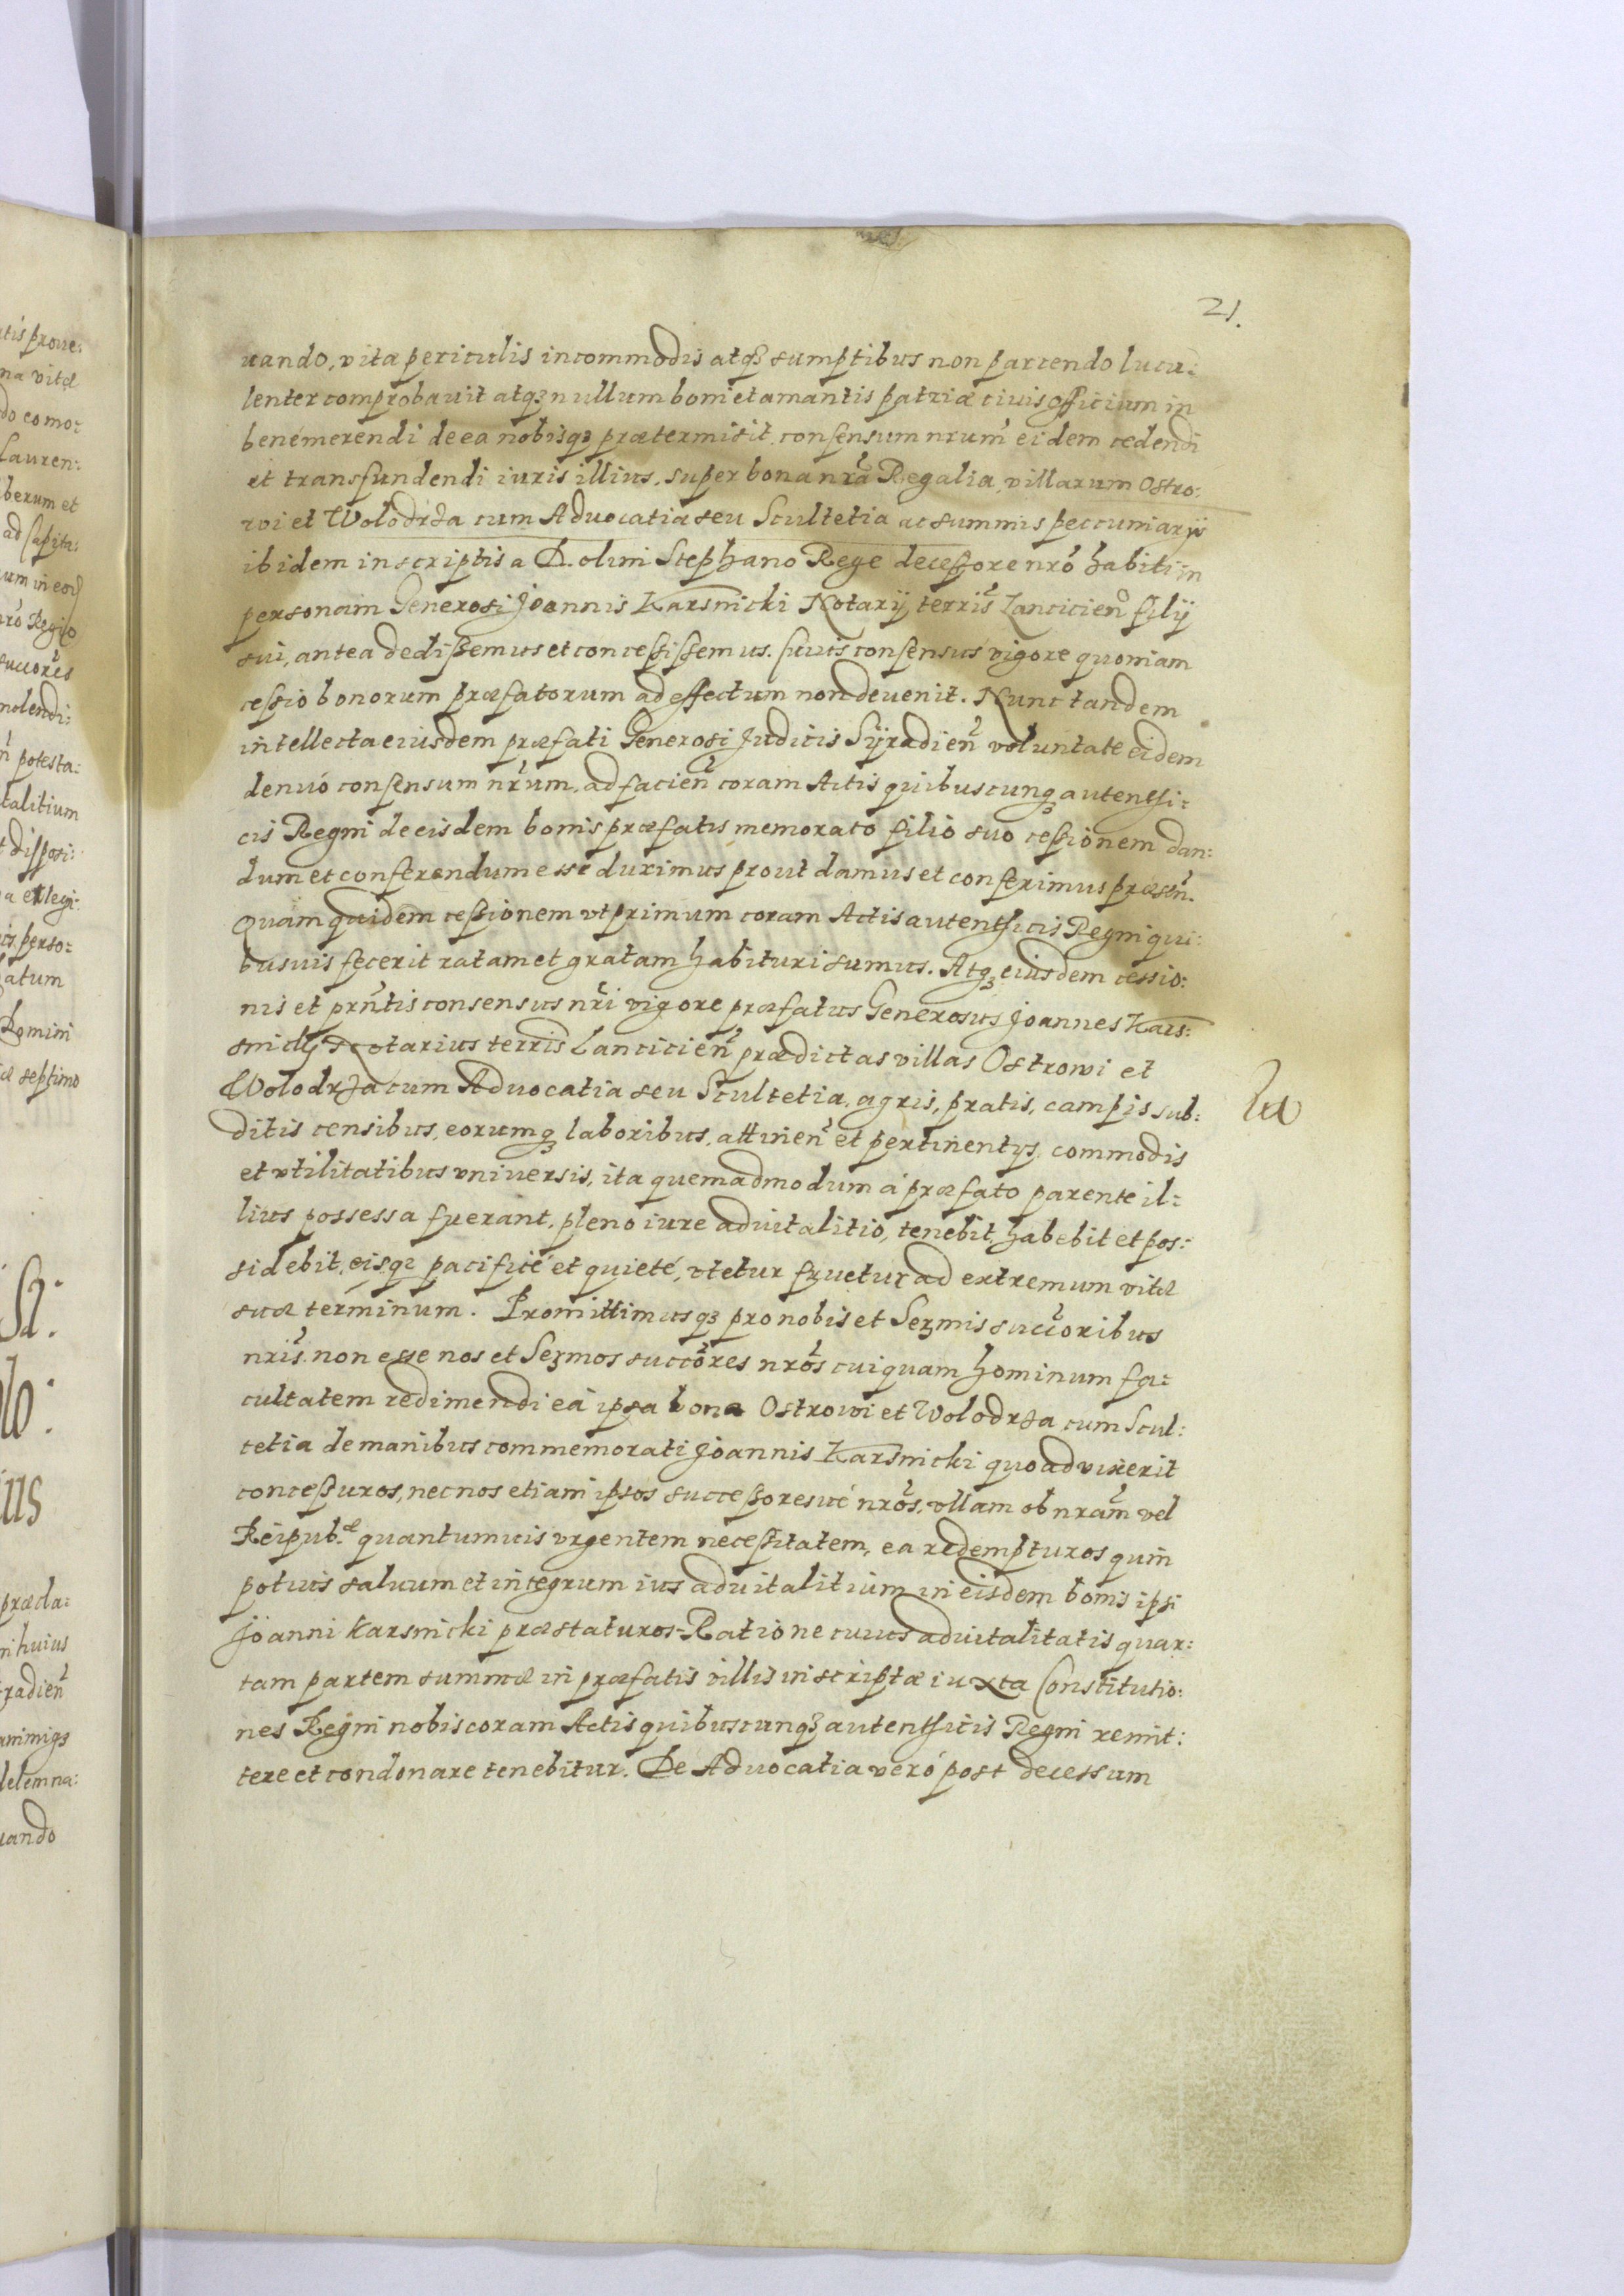 21.
uando, vitæ periculis incommodis atqȝ sumptibus non parcendo lucu:
lenter comprobauit atqȝ nullum boni et amantis patriæ ciuis officium in
benémerendi de ea nobisqȝ prætermisit, consensum nrum̃ eidem cedendi
et transfundendi iuris illius, super bona nrã Regalia, villarum Ostro:
wi et Wolodrza cum Aduocatia seu Scultetia ac summis peccuniarijs
ibidem inscriptis a D. olim Stephano Rege decessore nrõ habiti in
personam Generosi Joannis Karsnicki Notarij terris̃ Lancicieñ filij
sui, antea dedissemus et concessissemus. cuius consensus vigore quoniam
cessio bonorum præfatorum ad effectum non deuenit. Nunc tandem
intellecta eiusdem præfati Generosi Judicis Syradieñ voluntate eidem
denuó consensum nrũm, ad facieñ coram Actis quibuscunqȝ autenthi:
cis Regni de eisdem bonis præfatis memorato filio suo cessionem dan:
dum et conferendum esse duximus prout damus et conferimus præseñ.
Quam quidem cessionem vt primum coram Actis autenthicis Regni qui:
busuis fecerit ratam et gratam habituri sumus. Atqȝ eiusdem cessio:
nis et prñtis consensus nrĩ vigore præfatus Generosus Joannes Kars:
snicky Notarius terris̃ Lancicieñ prædictas villas Ostrowi et
Wolodrza cum Aduocatia seu Scultetia, agris, pratis, campis sub:
ditis censibus, eorumqȝ laboribus, attineñ et pertinentijs, commodis
et vtilitatibus vniuersis, ita quemadmodum á præfato parente il:
lius possessa fuerant, pleno iure aduitalitio, tenebit, habebit et pos:
sidebit, eisqȝ pacificé et quieté, vtetur fruetur ad extremum vitæ
suæ términum. Promittimusqȝ pro nobis et Sermis succ̃oribus
nris̃. non esse nos et Sermos succõres nrõs cuiquam hominum fa:
cultatem redimendi eá ipsa bona Ostrowi et Wolodrza cum Scul:
tetia de manibus commemorati Joannis Karsnicki quoad vixerit
concessuros, nec nos etiam ipsos successoresué nrõs, vllam ob nrãm vel
Reipub.æ quantumuis vrgentem necessitatem, ea redempturos quin
potius saluum et integrum ius aduitalitium in eisdem bonis ipsi
Joanni Karsnicki præstaturos. Ratione cuius aduitalitatis quar:
tam partem summæ in præfatis villis inscriptæ iuxta Constitutio:
nes Regni nobis coram Actis quibuscunqȝ autenthicis Regni remit:
tere et condonare tenebitur. De Aduocatia veró post decessum